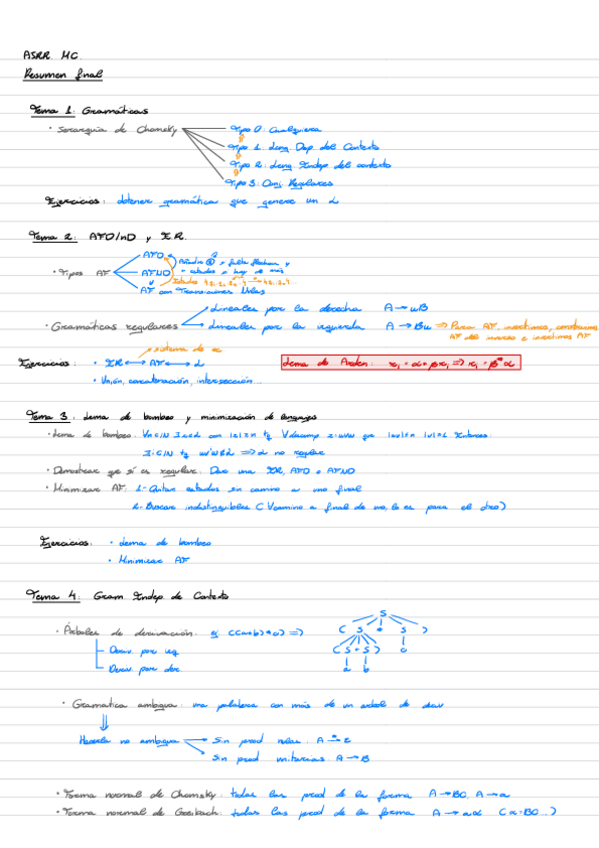 ASRR. MC.
Resumen final
Tema 1: Gramáticas
· Jerarquía de Chomsky
Tipo 0: Cualquiera
Tipo 1: Leng. Dep. del Contexto
Tipo 2: Leng. Indep del contexto
Tipo 3: Conj. Regulares
Ejercicios: obtener gramática que genere un L
Tema 2: AFD/ND y ER.
· Tipos AF
AFD
AFND
AF con Transiciones Nulas
· Gramáticas regulares
Lineales por la derecha A → uB
Lineales por la izquierda A → Bu ⇒ Para AF, invertimos, construimos
AF del inverso e invertimos AF
sistema de ec
Ejercicios: · ER ↔ AF ↔ L
Lema de Arden: xi = α + βxi ⇒ xi = β*α
· Unión, concatenación, intersección...
Tema 3: Lema de bombeo y minimización de lenguajes
· Lema de bombeo: ∀n∈N ∃z∈L con |z|≥n tq ∀descomp z=uvw que |uv|≤n |v|≥1 Entonces:
∃i∈N tq uvⁱw∉L ⇒ L no regular
· Demostrar que sí es regular: Dar una ER, AFD o AFND
· Minimizar AF: 1- Quitar estados sin camino a uno final
2- Buscar indistinguibles (∀camino a final de uno, lo es para el otro)
Ejercicios: · Lema de bombeo
· Minimizar AF
Tema 4: Gram Indep de Contexto
· Árboles de derivación: ej ((a+b)*a) ⇒
Deriv. por izq
Deriv. por der
S
( S * S )
( S + S ) a
a b
· Gramática ambigua: una palabra con más de un arbol de deriv
Hacerla no ambigua
Sin prod nulas: A → ε
Sin prod unitarias A → B
· Forma normal de Chomsky: todas las prod de la forma A → BC, A → a
· Forma normal de Greibach: todas las prod de la forma A → aα (α=BC...)